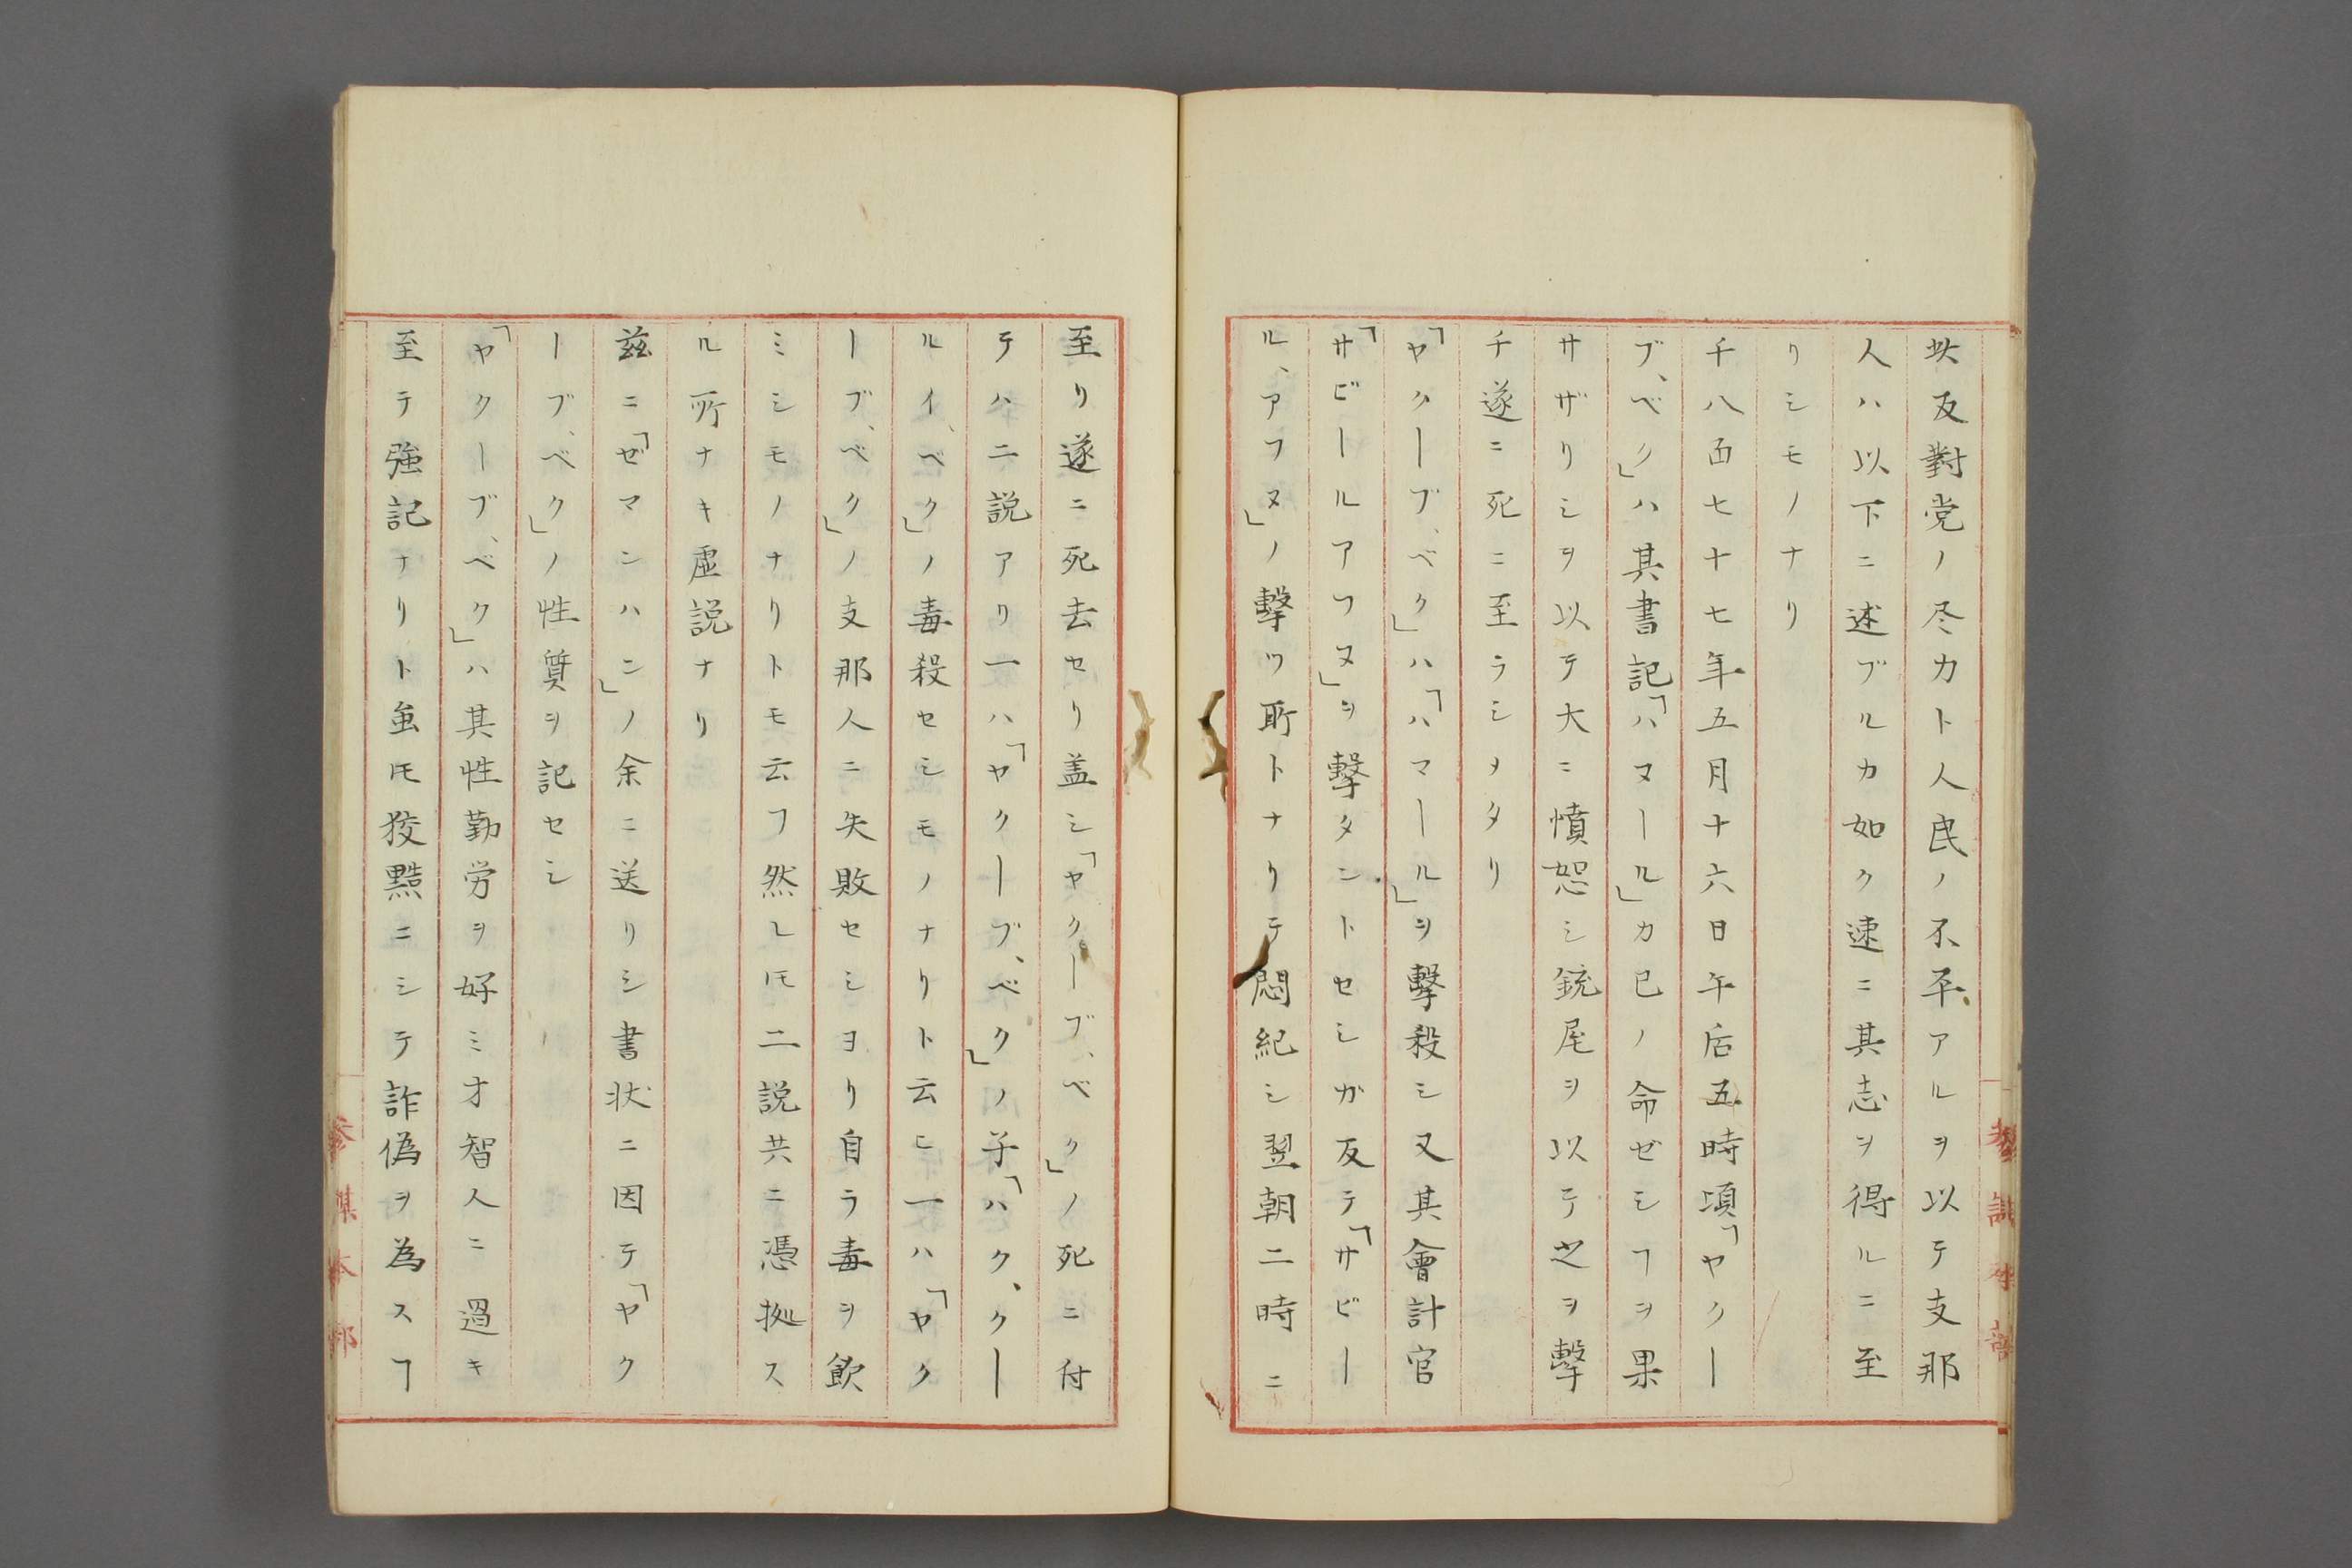 此反對党ノ尽力ト人民ノ不平アルヲ以テ支那
人ハ以下ニ述ブルカ如ク速ニ其志ヲ得ルニ至
リシモノナリ
千八百七十七年五月十六日午后五時頃「ヤクー
ブ、ベク」ハ其書記「ハマール」カ已ノ命ゼシヿヲ果
サザリシヲ以テ大ニ憤恕シ銃尾ヲ以テ之ヲ擊
チ遂ニ死ニ至ラシメタリ
「ヤクーブ、ベク」ハ「ハマール」ヲ擊殺シ又其會計官
「サビールアフヌ」ヲ擊タントセシガ反テ「サビー
ル、アフヌ」ノ擊ツ所トナリテ悶絶シ翌朝二時ニ
至リ遂ニ死去セリ蓋シ「ヤクーブ、ベク」ノ死ニ付
テハ二説アリ一ハ「ヤクーブ、ベク」ノ子「ハク、クー
ルイ、ベク」ノ毒殺セシモノナリト云ヒ一ハ「ヤク
ーブ、ベク」ノ支那人ニ失敗セシヨリ自ラ毒ヲ飲
ミシモノナリトモ云フ然レㇳモ二説共ニ憑拠ス
ル所ナキ虚説ナリ
茲ニ「ゼマンハン」ノ余ニ送リシ書状ニ因テ「ヤク
ーブ、ベク」ノ性質ヲ記セシ
「ヤクーブ、ベク」ハ其性勤労ヲ好ミ才智人ニ過キ
至テ強記ナリト虽𪜈狡黠ニシテ詐偽ヲ為スヿ
參謀本部